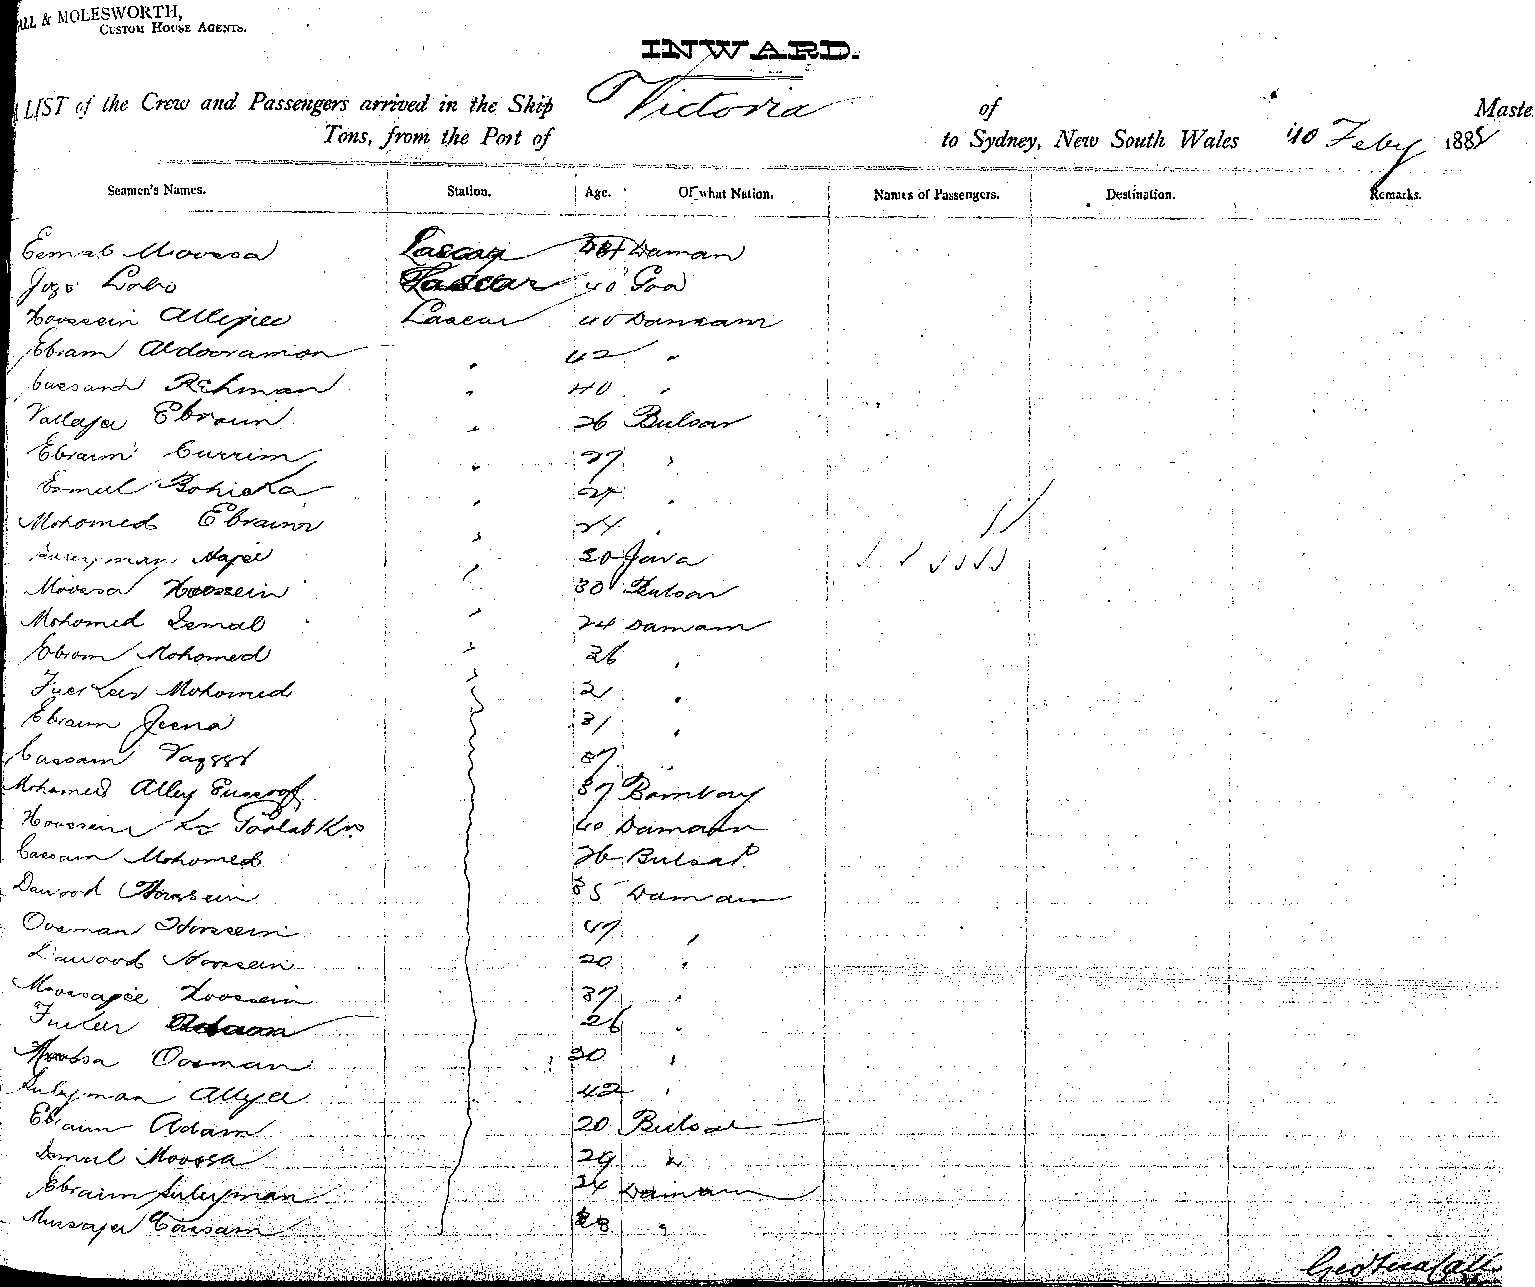 ALL & MOLESWORTH,
CUSTOM HOUSE AGENTS.
INWARD.
LIST of the Crew and Passengers arrived in the Ship Victoria of Maste
Tons, from the Port of to Sydney, New South Wales 10 Feby 188
Seamen's Names. Station. Age. Of what Nation. Names of Passengers. Destination. Remarks.
Esmal Moossa Lascar Daman
Joze Lobo Lascar 40 Goa
Hoossein Allejee Lascar 40 Damaam
Ebram Aldooramon " 42 "
Rehman " 40 "
Vallaja Ebraim " 26 Bulsar
Ebraim Currim " 27 "
Esmul " "
Mohomed Ebraim " 24 "
Hajee " Java
Moossa Hoossein " 30 Bulsar
Mohomed Ismal " 24 Damam
Ebram Mohomed " 26 "
Mohomed " 21 "
Ebraim Jeena 31 "
Cassam 37 "
Mohamed Alley Eussoof 37 Bombay
Hoossein 40 Damaan
Cassam Mohomed 26 Bulsar
Dawood Hoossein 35 Damam
Oosman Hoossein 47 "
Dawood Hoossein 20 "
Moosajee Hoossein 37 "
Adam 26 "
Moossa Oosman 30 "
Sulyman Allyee 42 "
Ebraim Adam 20 Bulsar
Ismul Moossa 29 "
Ebraim Sulyman 24 Damam
Cassam 28 "